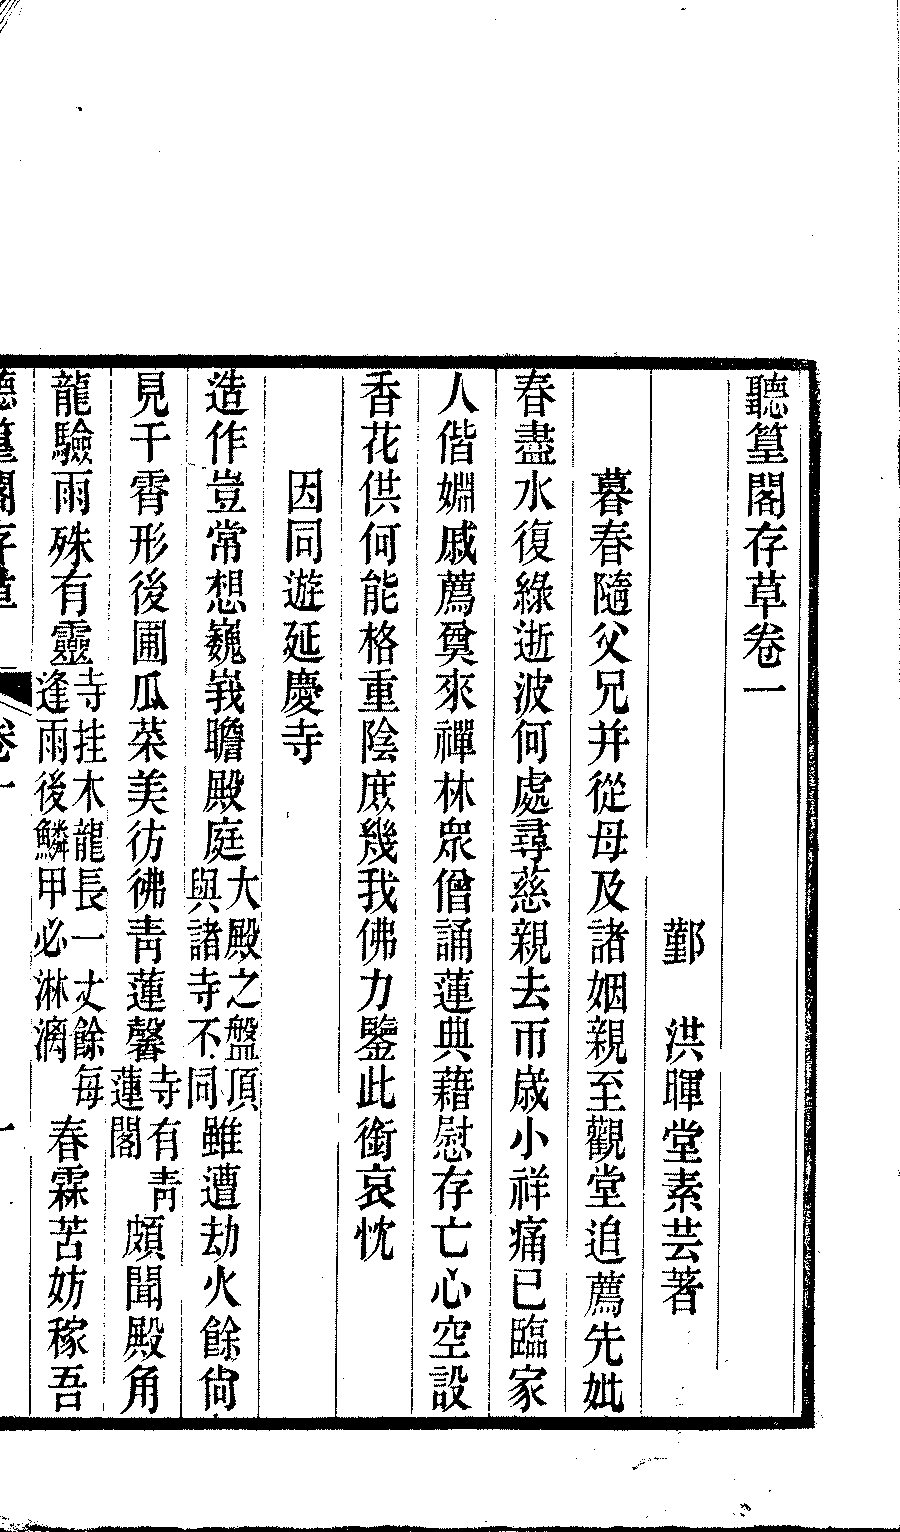 聽篁閣存草卷一
鄞　洪暉堂素芸著
暮春隨父兄并從母及諸姻親至觀堂追薦先妣
春盡水復綠逝波何處尋慈親去帀歲小祥痛已臨家
人偕婣戚薦奠來禪林眾僧誦蓮典藉慰存亡心空設
香花供何能格重陰庶幾我佛力鑒此銜哀忱
因同遊延慶寺
造作豈常想巍峩瞻殿庭大殿之盤頂與諸寺不同雖遭劫火餘尙
見千霄形後圃瓜菜美彷彿靑蓮馨寺有靑蓮閣頗聞殿角
龍驗雨殊有靈寺挂木龍長一丈餘每逢雨後鱗甲必淋漓春霖苦妨稼吾
聽篁閣存草　卷一　一